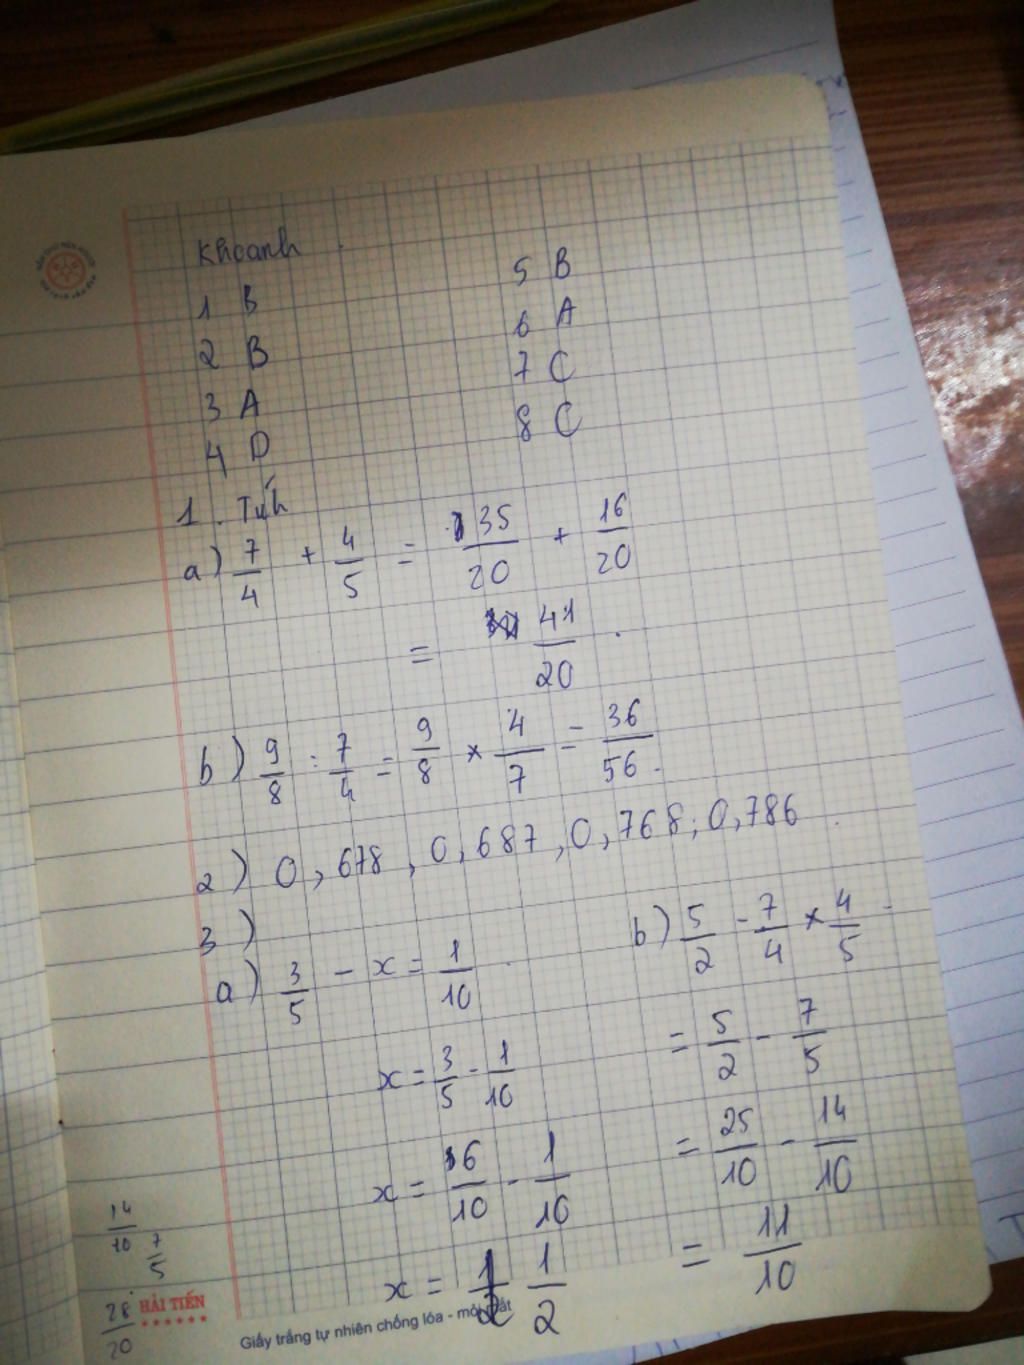 Khoanh
1 B
2 B
3 A
4 D
5 B
6 A
7 C
8 C
1. Tính
a) 7/4 + 4/5 = 35/20 + 16/20
= 41/20.
b) 9/8 : 7/4 = 9/8 × 4/7 = 36/56.
2) 0,678, 0,687, 0,768; 0,786
3)
a) 3/5 - x = 1/10
x = 3/5 - 1/10
x = 6/10 - 1/10
x = 1/2
b) 5/2 - 7/4 × 4/5
= 5/2 - 7/5
= 25/10 - 14/10
= 11/10
14/10
7/5
28/20
HẢI TIẾN
Giấy trắng tự nhiên chống lóa - mỏi mắt